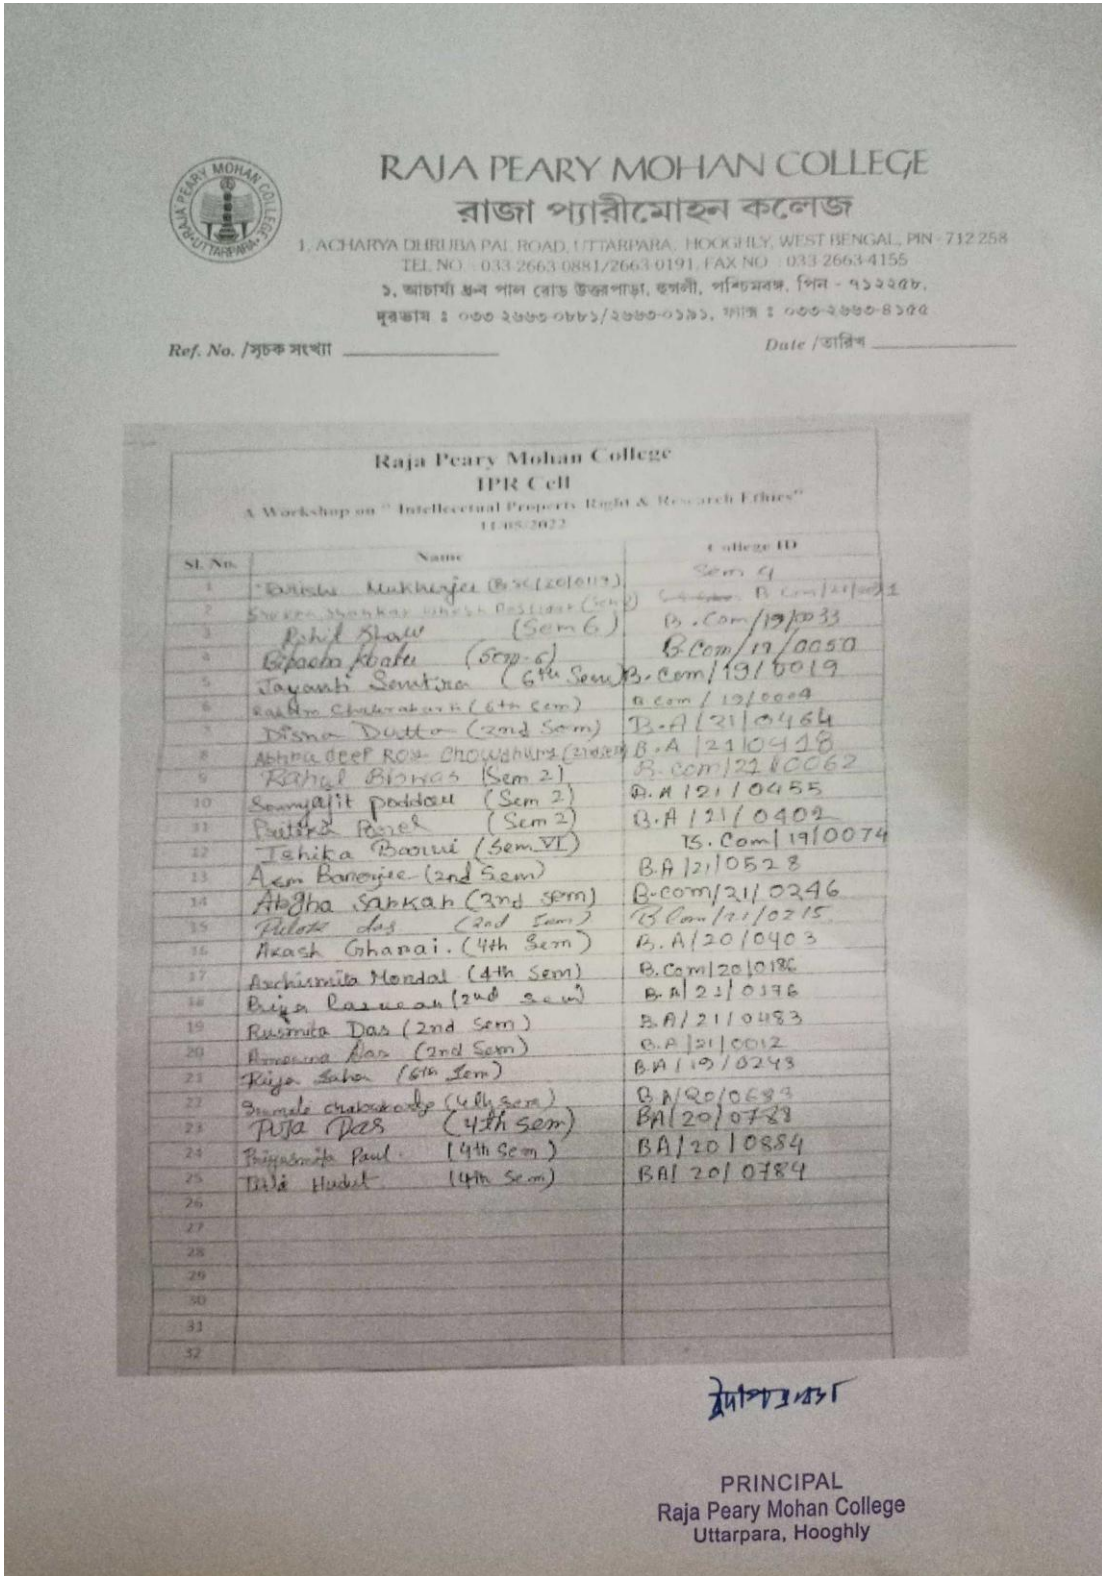 RAJA PEARY MOHAN COLLEGE
রাজা প্যারীমোহন কলেজ
RAJA PEARY MOHAN COLLEGE
UTTARPARA
1, ACHARYA DHRUBA PAL ROAD, UTTARPARA, HOOGHLY, WEST BENGAL, PIN - 712 258
TEL NO. : 033-2663-0881/2663-0191, FAX NO : 033-2663-4155
১, আচার্য্য ধ্রুব পাল রোড উত্তরপাড়া, হুগলী, পশ্চিমবঙ্গ, পিন - ৭১২২৫৮,
দূরভাষ : ০৩৩-২৬৬৩-০৮৮১/২৬৬৩-০১৯১, ফ্যাক্স : ০৩৩-২৬৬৩-৪১৫৫
Ref. No. /সূচক সংখ্যা Date /তারিখ
Raja Peary Mohan College
IPR Cell
A Workshop on " Intellectual Property Right & Research Ethics"
11/05/2022
Sl. No. Name College ID
1 Mukherjee (BSC/20/0119) Sem 4
2
3 Shaw (Sem 6) B.Com/19/0033
4 (Sem-6) B.Com/19/0050
5 Jayanti (6th Sem) B.Com/19/0019
6 Chakrabarti (6th Sem) B.com/19/0004
7 Disha Dutta (2nd Sem) B.A/21/0464
8 Abhradeep Roy Chowdhury (2nd sem) B.A/21/0418
9 Rahul Biswas (Sem 2) B.com/21/0062
10 Soumyajit poddar (Sem 2) B.A/21/0455
11 (Sem 2) B.A/21/0402
12 Ishika (Sem VI) B.Com/19/0074
13 Banerjee (2nd Sem) B.A/21/0528
14 Sarkar (2nd sem) B.com/21/0246
15 das (2nd Sem) B Com/21/0215
16 Akash Ghanai. (4th Sem) B.A/20/0403
17 Archismita Mondal (4th Sem) B.Com/20/0186
18 Priya (2nd Sem) B.A/21/0176
19 Rusmita Das (2nd Sem) B.A/21/0483
20 Das (2nd Sem) B.A/21/0012
21 Riya Saha (6th Sem) B.A/19/0243
22 (4th sem) B.A/20/0683
23 PUJA DAS (4th Sem) BA/20/0788
24 Priyasmita Paul. (4th Sem) BA/20/0884
25 (4th Sem) BA/20/0784
26
27
28
29
30
31
32
PRINCIPAL
Raja Peary Mohan College
Uttarpara, Hooghly